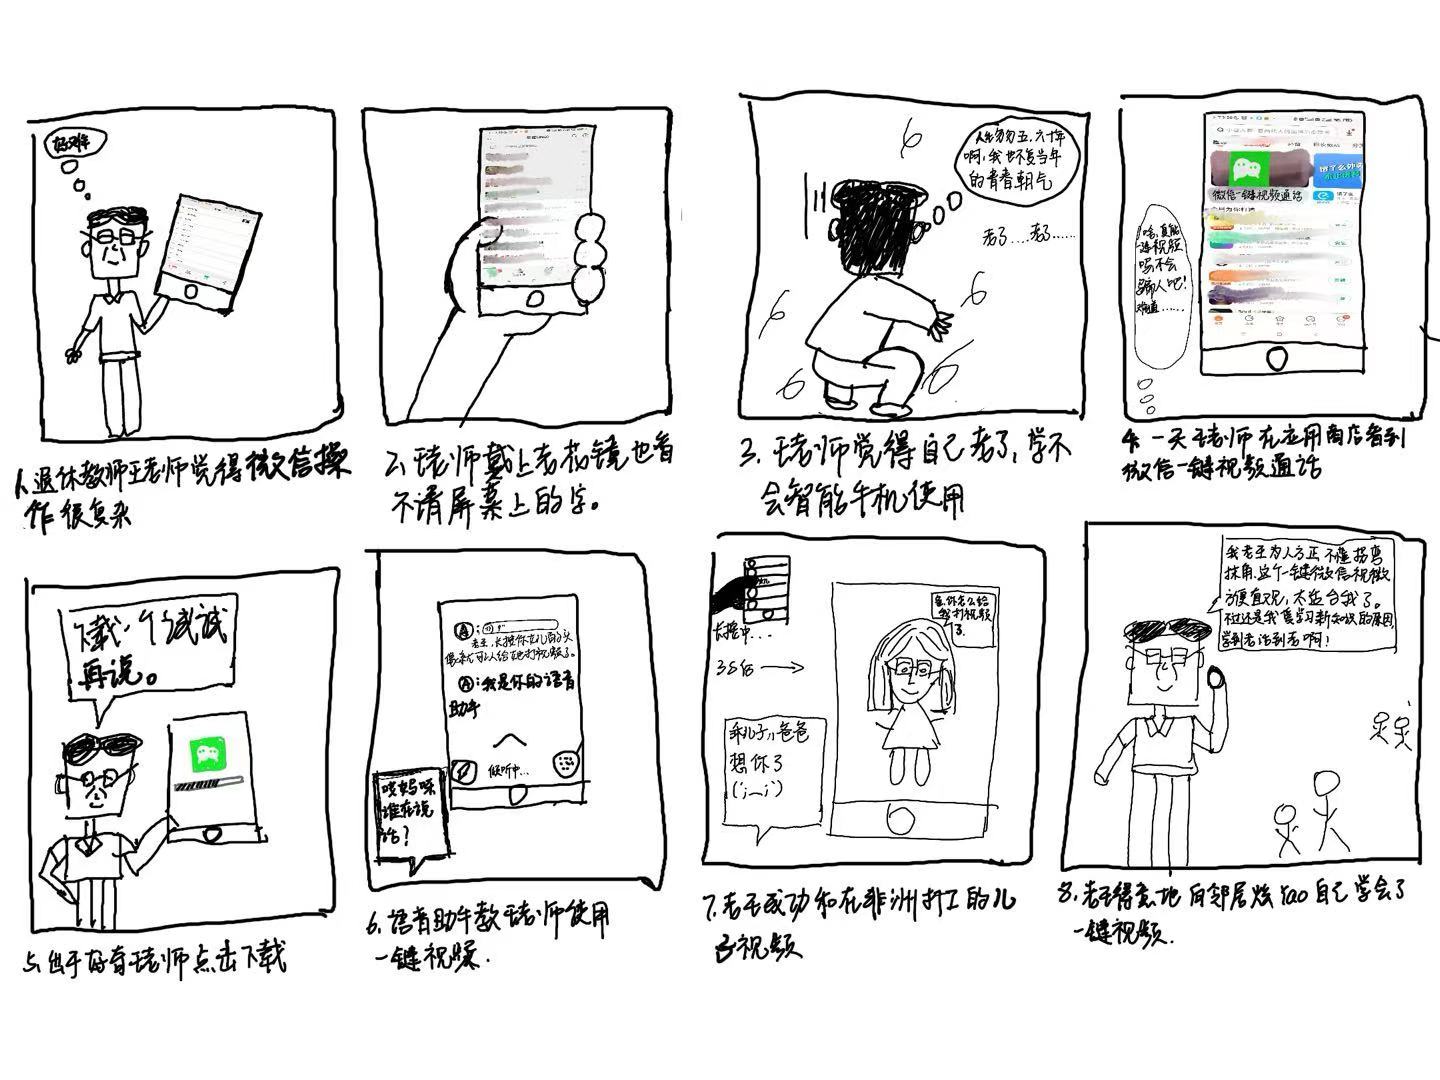 好难
1.退休教师王老师觉得微信操
作很复杂
2.王老师戴上老花镜也看
不清屏幕上的字。
人生匆匆五、六十年
啊,我也不复当年
的青春朝气
老了....老了......
3.王老师觉得自己老了,学不
会智能手机使用
微信一键视频通话
啥,真能
连视频
吗不会
骗人吧!
难道......
4.一天王老师在应用商店看到
微信一键视频通话
下载一个试试
再说。
5.出于好奇王老师点击下载
A:
老王,长按你在儿的头
像,就可以给他打视频了。
A:我是你的语音
助手
倾听中...
哎妈呀
谁在说
话?
6.语音助手教王老师使用
一键视频.
长按中...
3S后
爸,你怎么给
我打视频
了.
乖儿子,爸爸
想你了
7.老王成功和在非洲打工的儿
子视频
我老王为人方正不懂拐弯
抹角,这个一键微信视频
方便直观,太适合我了。
不过还是我爱学习新知识的原因,
学到老活到老啊!
8.老王得意地向邻居炫yao自己学会了
一键视频.